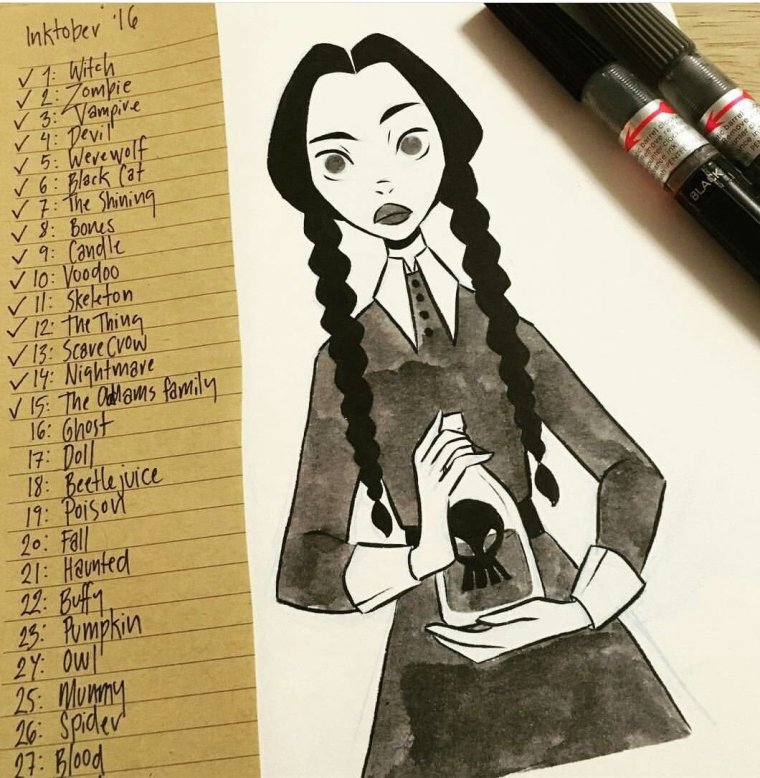 Inktober '16
✓ 1: Witch
✓ 2: Zombie
✓ 3: Vampire
✓ 4: Devil
✓ 5: Werewolf
✓ 6: Black Cat
✓ 7: The Shining
✓ 8: Bones
✓ 9: Candle
✓ 10: Voodoo
✓ 11: Skeleton
✓ 12: The Thing
✓ 13: ScareCrow
✓ 14: Nightmare
✓ 15: The Addams family
16: Ghost
17: Doll
18: Beetlejuice
19: Poison
20: Fall
21: Haunted
22: Buffy
23: Pumpkin
24: Owl
25: Mummy
26: Spider
27: Blood
BLACK